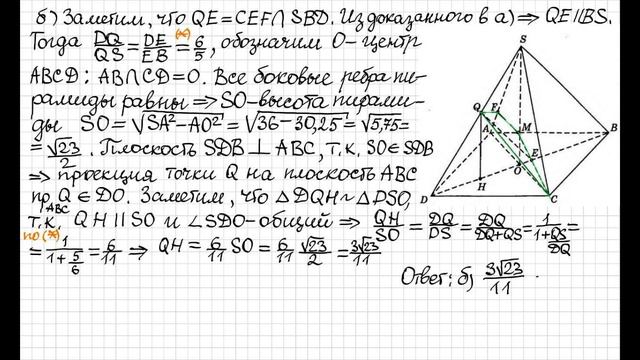 б) Заметим, что QE=CEF∩SBD. Из доказанного в а) ⇒ QE∥BS.
Тогда DQ/QS = DE/EB =(*) 6/5, обозначим O-центр
ABCD; AB∩CD=O. Все боковые ребра пи-
рамиды равны ⇒ SO-высота пирами-
ды SO=√(SA²-AO²)=√(36-30,25)=√5,75=
=√23/2. Плоскость SDB ⊥ ABC, т.к. SO∈SDB
⇒ проекция точки Q на плоскость ABC
пр_ABC Q ∈ DO. Заметим, что △DQH ~ △DSO,
т.к. QH ∥ SO и ∠SDO-общий ⇒ QH/SO = DQ/DS = DQ/(DQ+QS) = 1/(1+QS/DQ) =
по (*)
= 1/(1+5/6) = 6/11 ⇒ QH = 6/11 SO = 6/11 √23/2 = 3√23/11
Ответ: б) 3√23/11.
S
Q
F
A
M
B
O
E
D
H
C